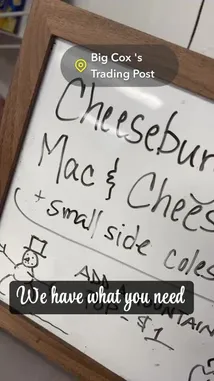 Big Cox 's
Trading Post
Cheesebur
Mac & Chees
+ small side coles
ADD A MOUNTAIN
$1
We have what you need